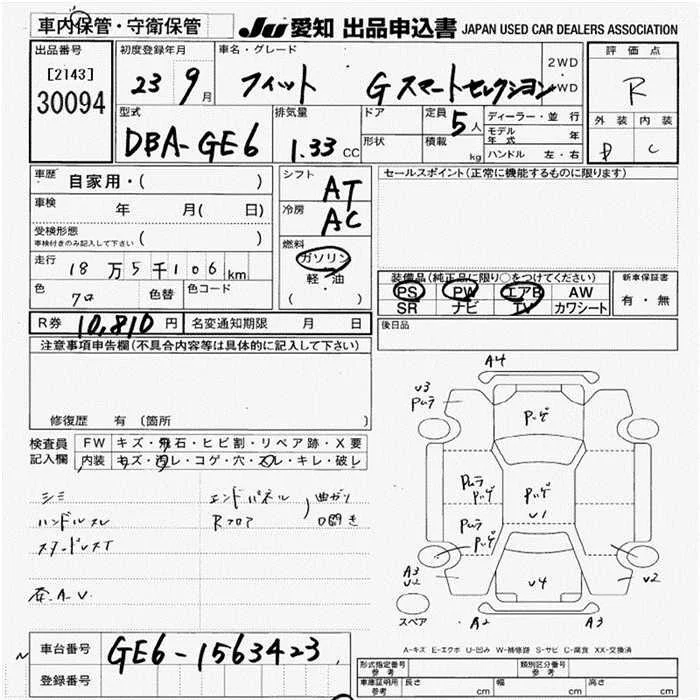 車内保管・守衛保管
JU 愛知 出品申込書 JAPAN USED CAR DEALERS ASSOCIATION
出品番号 初度登録年月 車名・グレード 2WD・4WD 評価点
[2143] 30094 23 9月 フィット Gスマートセレクション R
型式 排気量 ドア 定員 5人 ディーラー・並行 外装 内装
DBA-GE6 1.33CC 形状 積載 kg モデル年式 年 C
ハンドル 左・右
車歴 自家用・( ) シフト AT セールスポイント(正常に機能するものに限ります)
車検 年 月( 日) 冷房 AC
受検形態 車検付きのみ記入して下さい ( ) 燃料 ガソリン
走行 18万5千106km 軽・油 装備品(純正品に限り○をつけてください) 新車保証書
色 色替 色コード ( ) PS PW エアB AW 有・無
SR ナビ TV カワシート
R券 10,810円 名変通知期限 月 日 後日品
注意事項申告欄(不具合内容等は具体的に記入して下さい)
修復歴 有 (箇所 )
検査員 FW キズ・飛石・ヒビ割・リペア跡・X要
記入欄 内装 キズ・汚レ・コゲ・穴・スレ・キレ・破レ
シミ エンドパネル 曲がり
ハンドルスレ Rフロア
A4
U3
U1
A3
U2 U4 U2
スペア A2 A3
A-キズ E-エクボ U-凹み W-補修跡 S-サビ C-腐食 XX-交換済
車台番号 GE6-1563423
登録番号
形式指定番号 参考 類別区分番号 参考
車庫証明用 参考 長さ cm 幅 cm 高さ cm